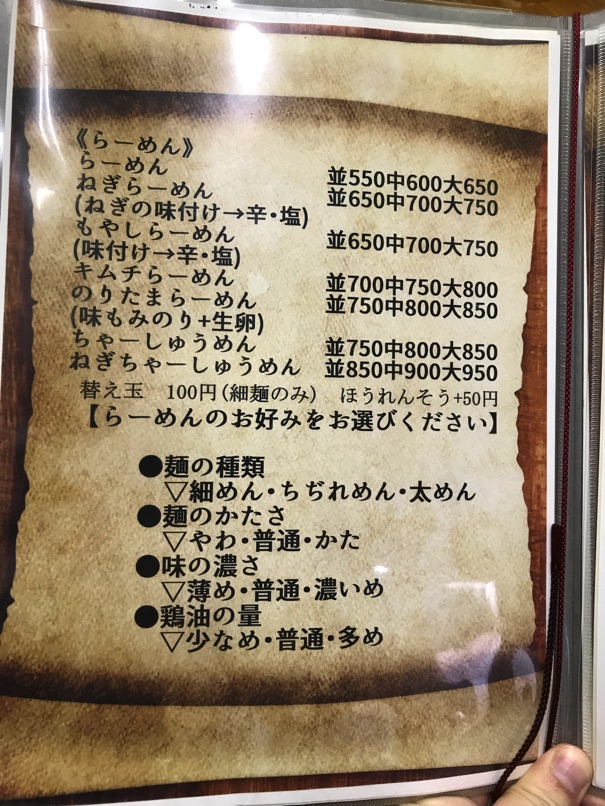 《らーめん》
らーめん 並550中600大650
ねぎらーめん 並650中700大750
(ねぎの味付け→辛・塩)
もやしらーめん 並650中700大750
(味付け→辛・塩)
キムチらーめん 並700中750大800
のりたまらーめん 並750中800大850
(味もみのり+生卵)
ちゃーしゅうめん 並750中800大850
ねぎちゃーしゅうめん 並850中900大950
替え玉 100円(細麺のみ) ほうれんそう+50円
【らーめんのお好みをお選びください】
●麺の種類
▽細めん・ちぢれめん・太めん
●麺のかたさ
▽やわ・普通・かた
●味の濃さ
▽薄め・普通・濃いめ
●鶏油の量
▽少なめ・普通・多め